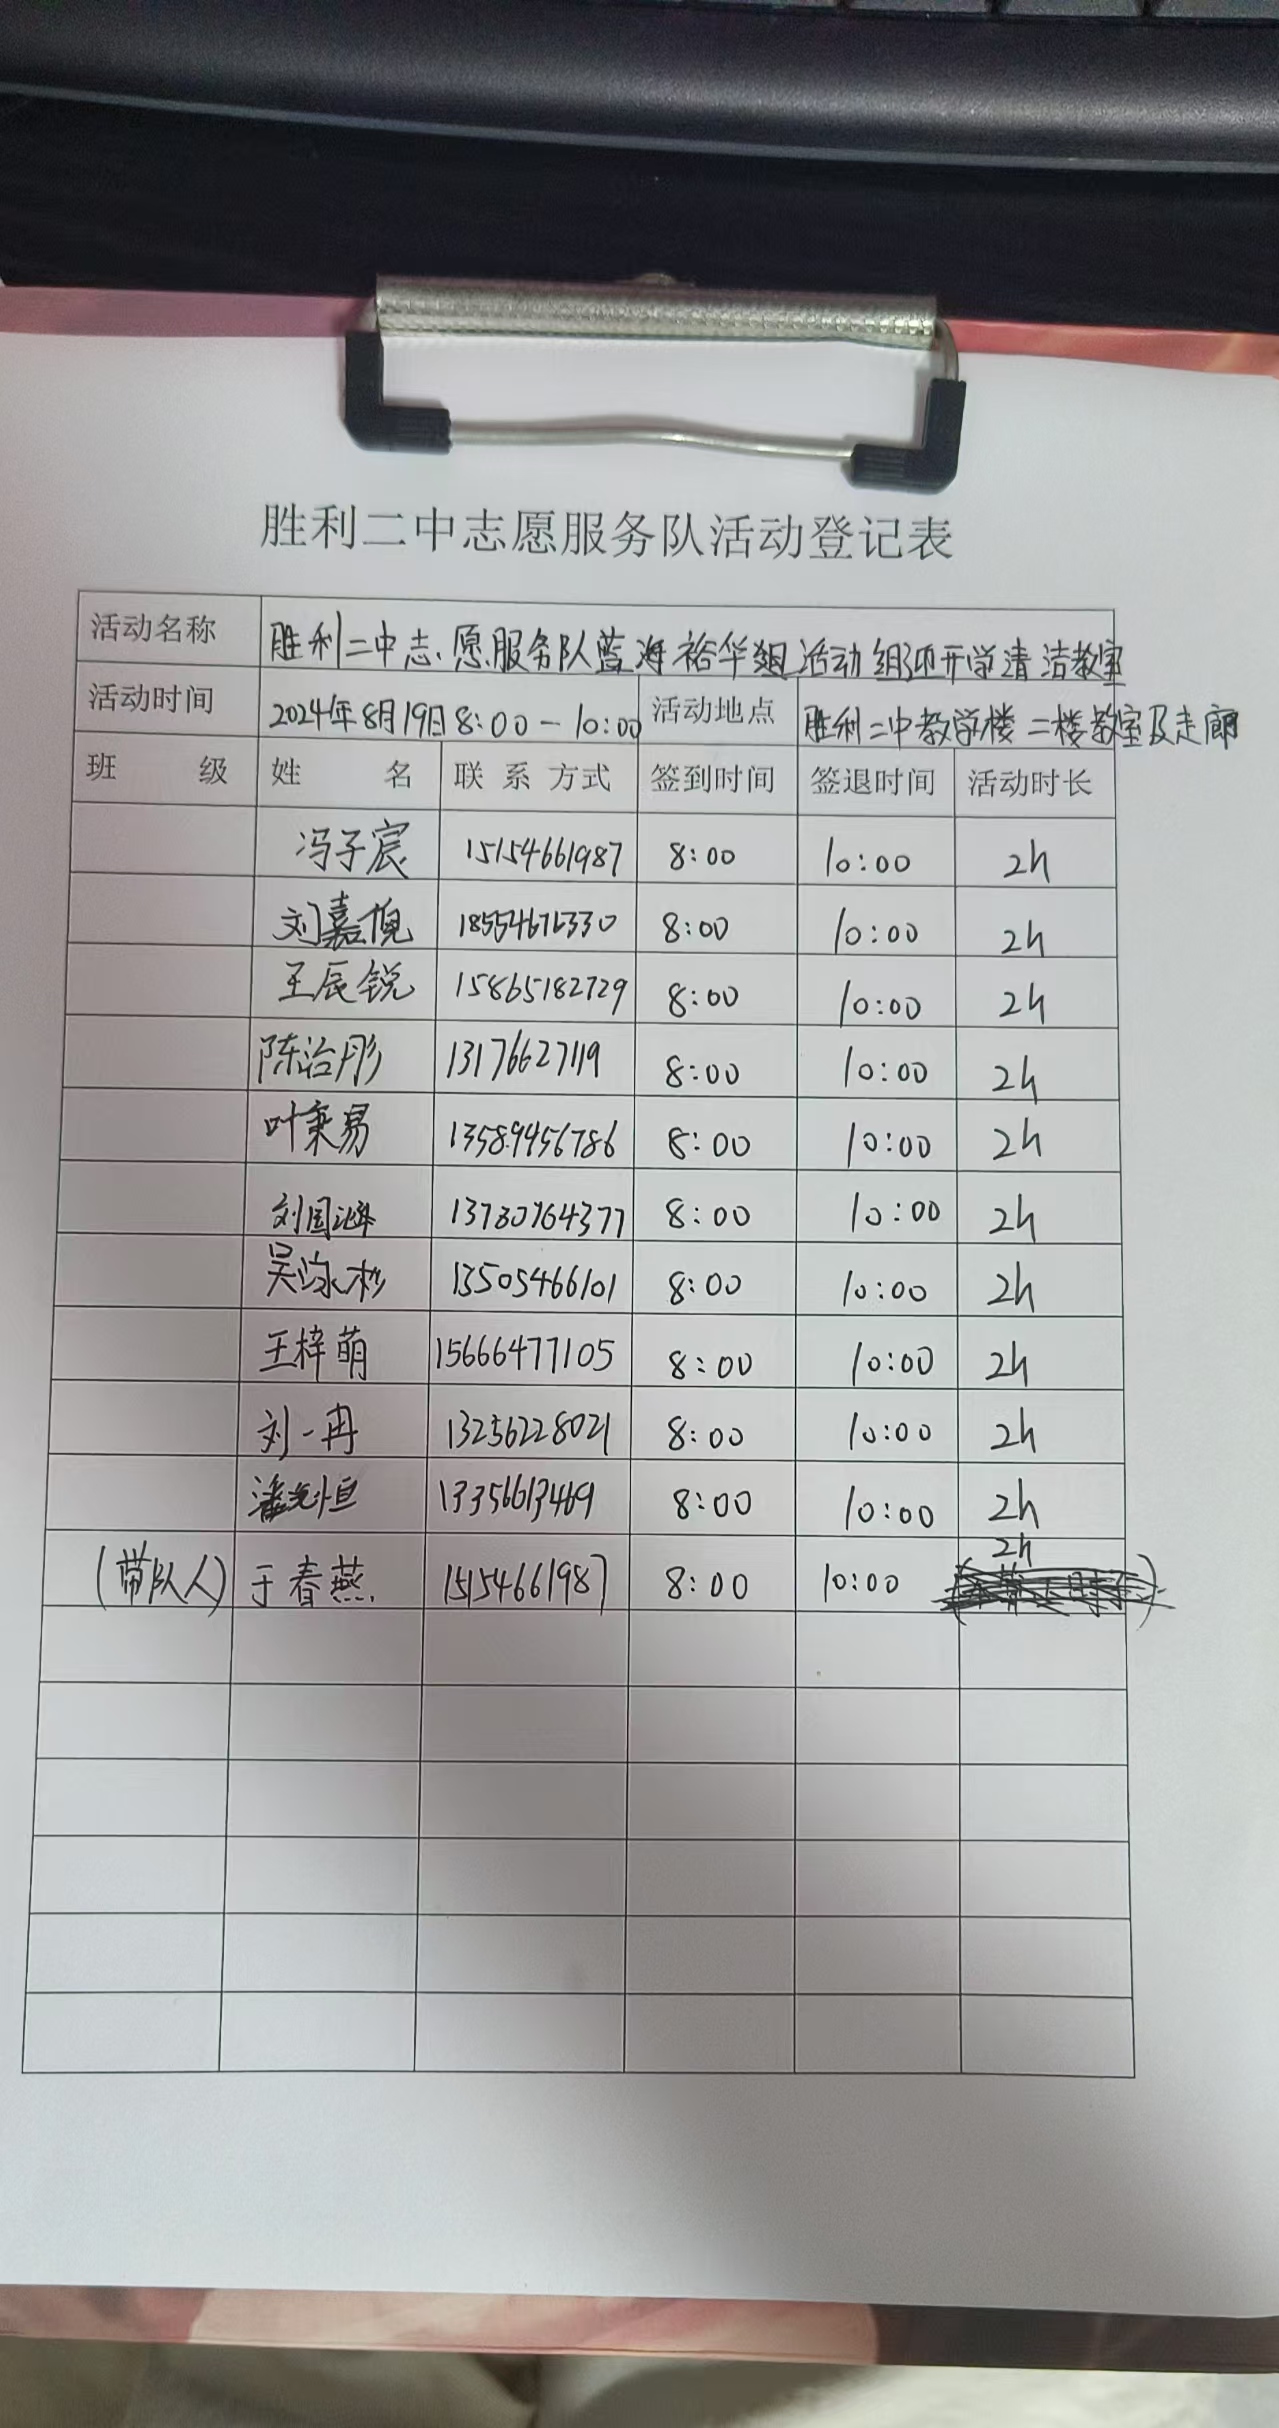 胜利二中志愿服务队活动登记表
活动名称 胜利二中志愿服务队蓝海裕华组活动组迎开学清洁教室
活动时间 2024年8月19日8:00-10:00 活动地点 胜利二中教学楼二楼教室及走廊
班 级 姓 名 联系方式 签到时间 签退时间 活动时长
冯子宸 15154661987 8:00 10:00 2h
刘嘉倪 18554676330 8:00 10:00 2h
王辰锐 15865182729 8:00 10:00 2h
陈治彤 13176627119 8:00 10:00 2h
叶秉易 13589456786 8:00 10:00 2h
刘国 13780764377 8:00 10:00 2h
吴泳杉 13505466101 8:00 10:00 2h
王梓萌 15666477105 8:00 10:00 2h
刘一冉 13256228021 8:00 10:00 2h
潘 恒 13356613469 8:00 10:00 2h
(带队人) 于春燕 15154661987 8:00 10:00 2h